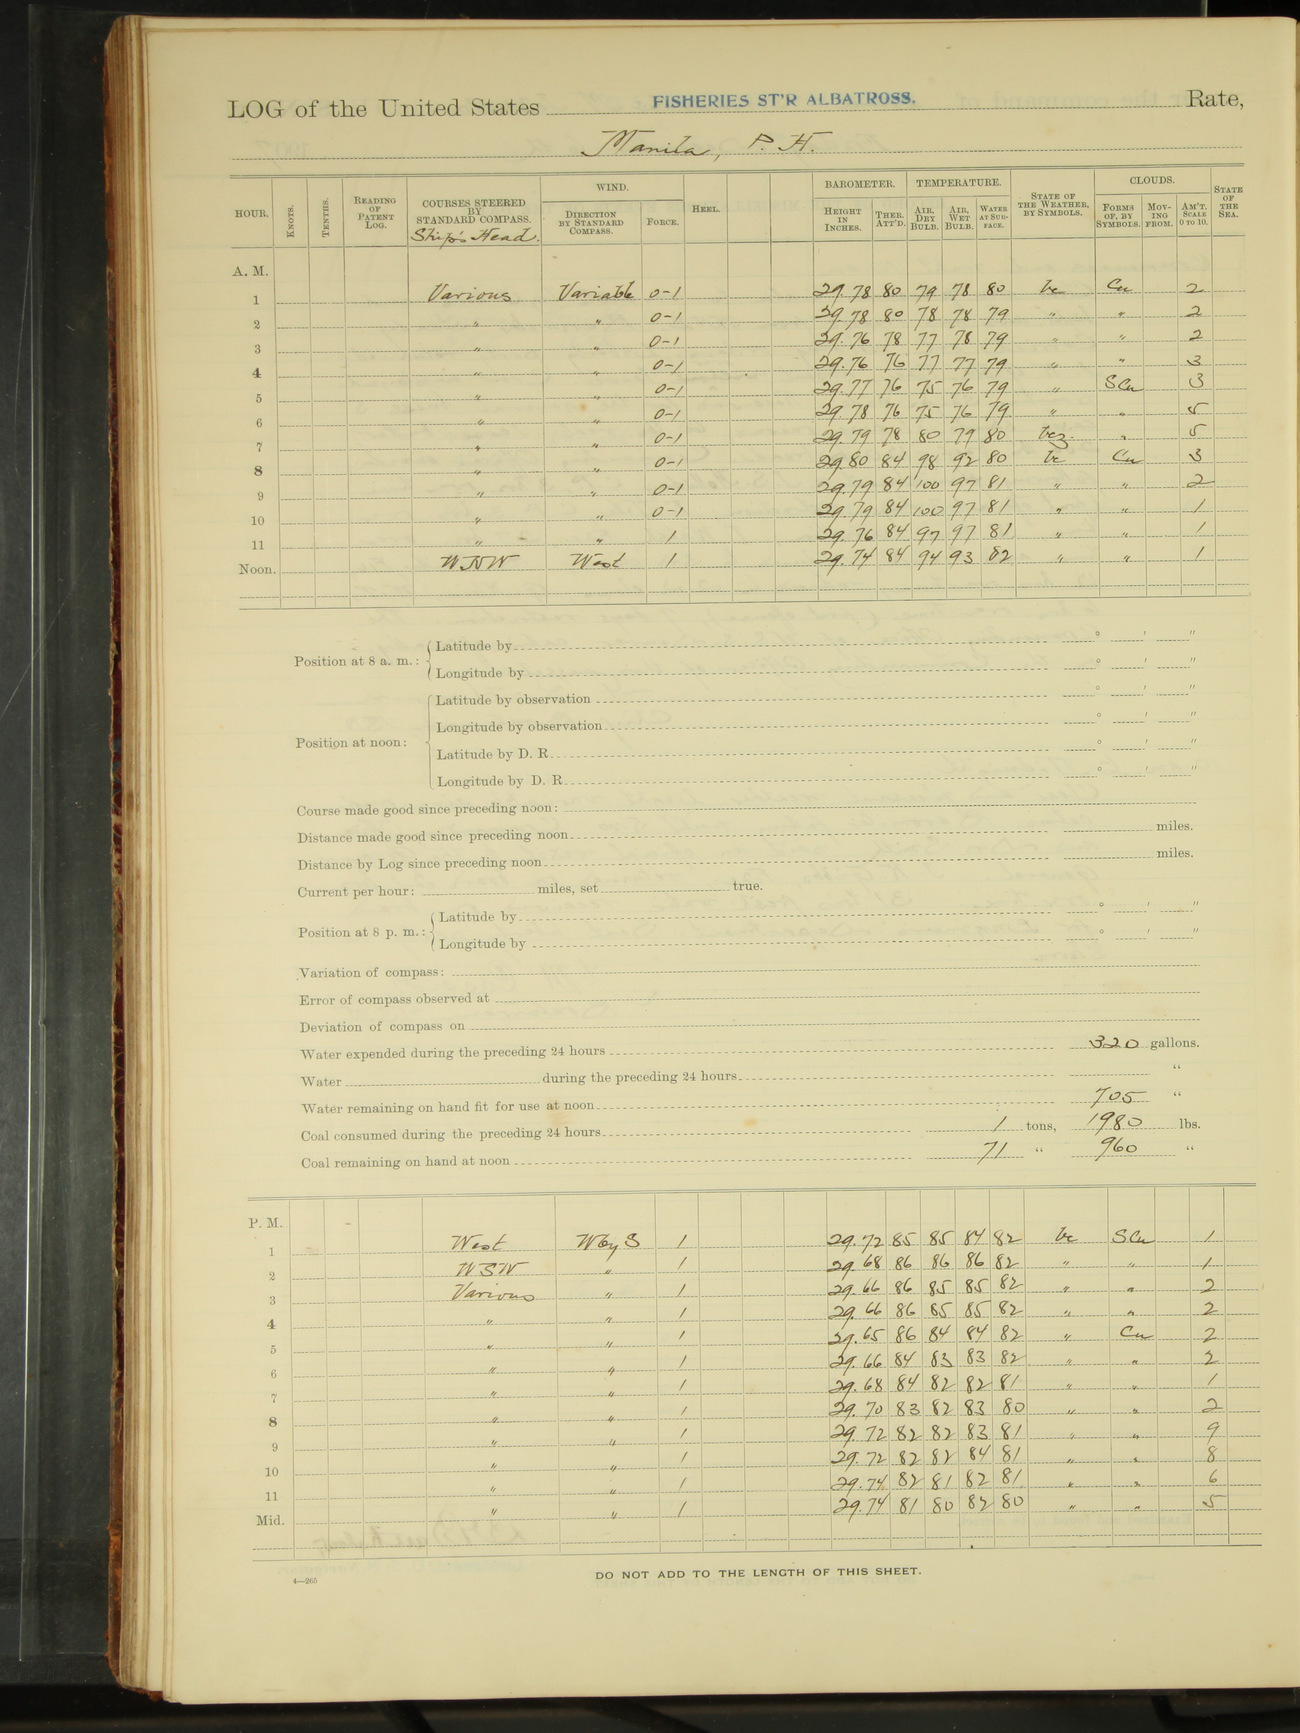 LOG of the United States FISHERIES ST'R ALBATROSS. Rate,
Manila, P. H.
HOUR. KNOTS. TENTHS. READING OF PATENT LOG. COURSES STEERED BY STANDARD COMPASS. Ship's Head. WIND. DIRECTION BY STANDARD COMPASS. FORCE. HEEL. BAROMETER. HEIGHT IN INCHES. THER. ATT'D. TEMPERATURE. AIR, DRY BULB. AIR, WET BULB. WATER AT SURFACE. STATE OF THE WEATHER, BY SYMBOLS. CLOUDS. FORMS OF, BY SYMBOLS. MOVING FROM. AM'T. SCALE 0 TO 10. STATE OF THE SEA.
A. M.
1 Various Variable 0-1 29.78 80 79 78 80 bc Cu 2
2 " " 0-1 29.78 80 78 78 79 " " 2
3 " " 0-1 29.76 78 77 78 79 " " 2
4 " " 0-1 29.76 76 77 77 79 " " 3
5 " " 0-1 29.77 76 75 76 79 " SCu 3
6 " " 0-1 29.78 76 75 76 79 " " 5
7 " " 0-1 29.79 78 80 79 80 bcz " 5
8 " " 0-1 29.80 84 98 92 80 bc Cu 3
9 " " 0-1 29.79 84 100 97 81 " " 2
10 " " 0-1 29.79 84 100 97 81 " " 1
11 " " 1 29.76 84 97 97 81 " " 1
Noon. WNW West 1 29.74 84 94 93 82 " " 1
Position at 8 a. m.: Latitude by ° ' "
Longitude by ° ' "
Position at noon: Latitude by observation ° ' "
Longitude by observation ° ' "
Latitude by D. R. ° ' "
Longitude by D. R. ° ' "
Course made good since preceding noon:
Distance made good since preceding noon miles.
Distance by Log since preceding noon miles.
Current per hour: miles, set true.
Position at 8 p. m.: Latitude by ° ' "
Longitude by ° ' "
Variation of compass:
Error of compass observed at
Deviation of compass on
Water expended during the preceding 24 hours 320 gallons.
Water during the preceding 24 hours "
Water remaining on hand fit for use at noon 705 "
Coal consumed during the preceding 24 hours 1 tons, 1980 lbs.
Coal remaining on hand at noon 71 " 960 "
P. M.
1 West W by S 1 29.72 85 85 84 82 bc SCu 1
2 WSW " 1 29.68 86 86 86 82 " " 1
3 Various " 1 29.66 86 85 85 82 " " 2
4 " " 1 29.66 86 85 85 82 " " 2
5 " " 1 29.65 86 84 84 82 " Cu 2
6 " " 1 29.66 84 83 83 82 " " 2
7 " " 1 29.68 84 82 82 81 " " 1
8 " " 1 29.70 83 82 83 80 " " 2
9 " " 1 29.72 82 82 83 81 " " 9
10 " " 1 29.72 82 82 84 81 " " 8
11 " " 1 29.74 82 81 82 81 " " 6
Mid. " " 1 29.74 81 80 82 80 " " 5
4—265
DO NOT ADD TO THE LENGTH OF THIS SHEET.